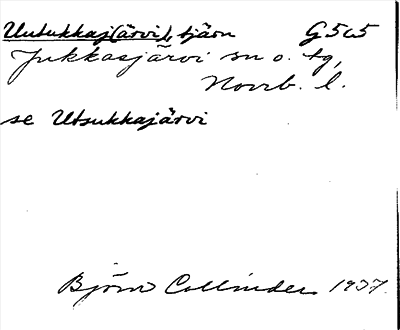 Uutukkaj(ärvi), tjärn G5c5
Jukkasjärvi sn o. tg,
Norrb. l.
se Utsukkajärvi
Björn Collinder 1937.